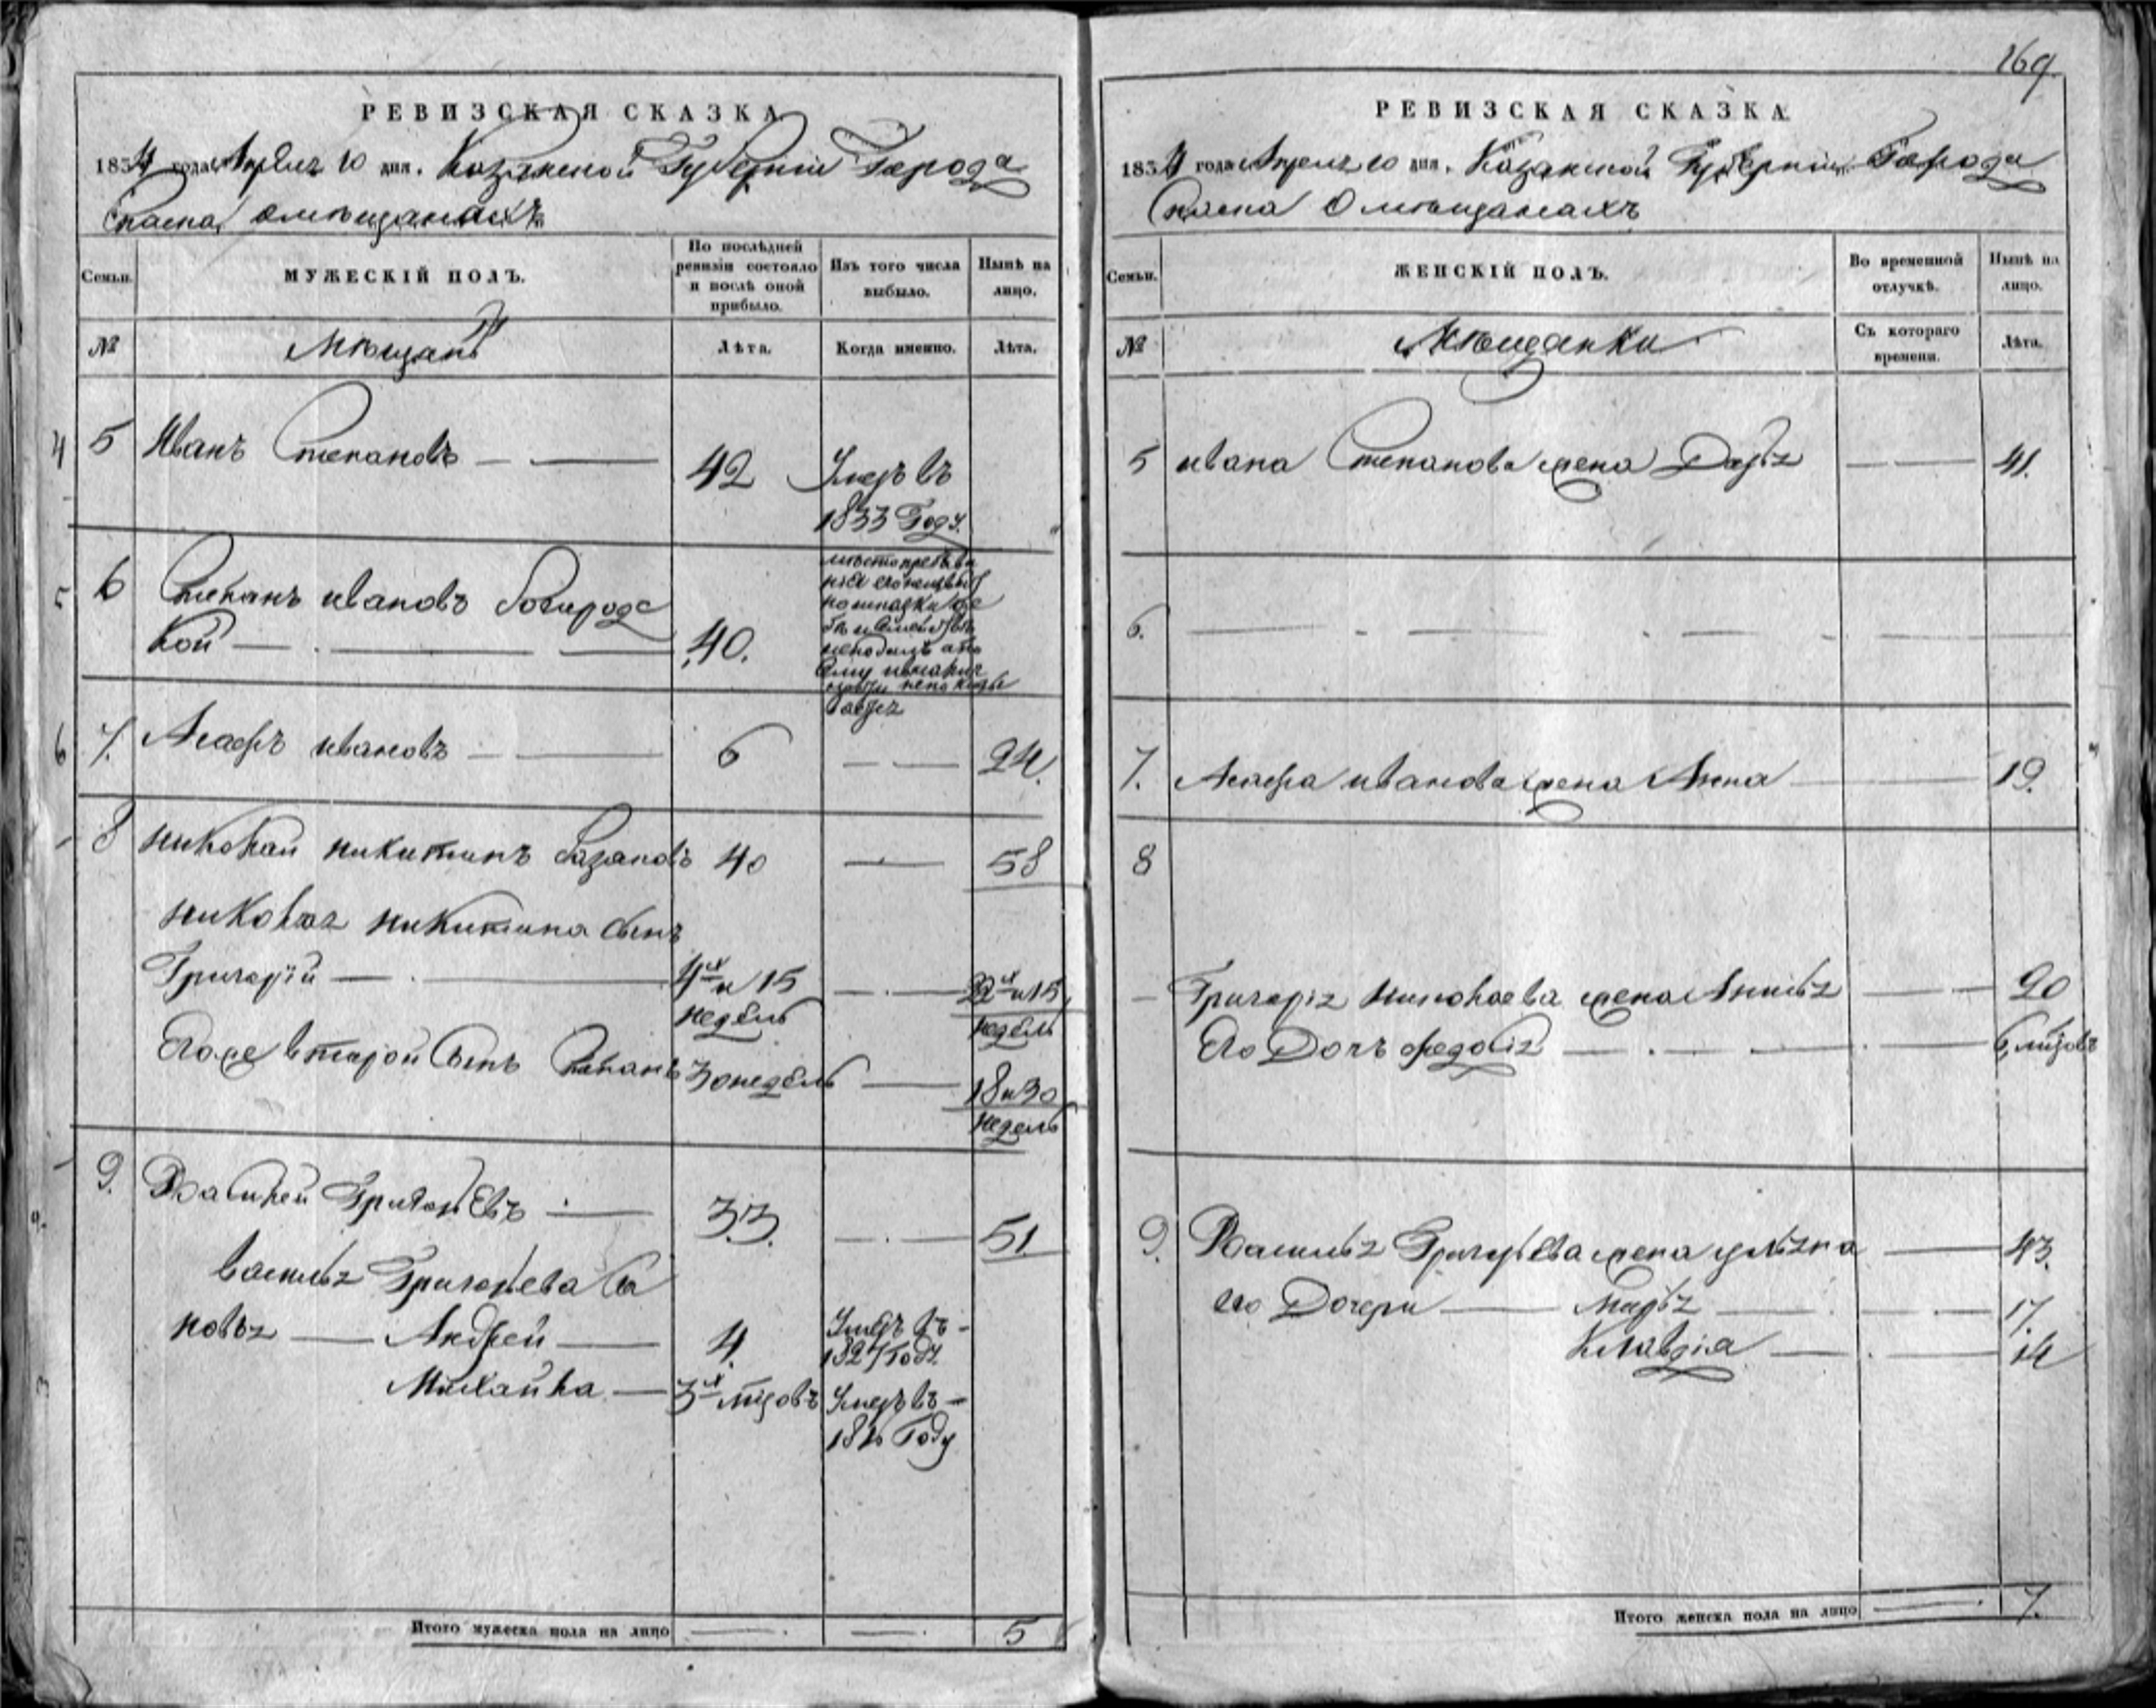 РЕВИЗСКАЯ СКАЗКА
1834 года Апреля 10 дня. Казанской Губернии Города
Спаска омещанахъ
Семьи.
МУЖЕСКІЙ ПОЛЪ.
По послѣдней
ревизіи состояло
и послѣ оной
прибыло.
Изъ того числа
выбыло.
Нынѣ на
лицо.
№
Мѣщанъ
Лѣта.
Когда именно.
Лѣта.
4 5 Иванъ Степановъ 42 Умеръ въ
1833 Году.
5 6 Степанъ ивановъ богородс
кой 40.
местопребыва
ние его
ему
6 7. Асафъ ивановъ 6 24.
8 николай никитинъ базановъ 40 58
николая никитина сынъ
Григорій 4х и 15 22х и 15
недель недель
Его же второй сынъ Степанъ 30 недель 18 и 30
недель
9. Василей Григорьевъ 33. 51.
василья Григорьева сы
новья Андрей 4. Умеръ въ
1827 Году
Михайла 3х мцовъ Умеръ въ
1816 Году
Итого мужеска пола на лицо 5
169.
РЕВИЗСКАЯ СКАЗКА.
1834 года Апреля 10 дня. Казанской Губернии Города
Спаска Омещанахъ
Семьи.
ЖЕНСКІЙ ПОЛЪ.
Во временной
отлучкѣ.
Нынѣ на
лицо.
№
Мѣщанки
Съ котораго
времени.
Лѣта.
5 ивана Степанова жена Дарья 41.
6.
7. Асафа иванова жена Анна 19.
8
Григорья Николаева жена 20
Его Дочь федосья 6 мцовъ
9. Василья Григорьева жена ульяна 43.
его Дочери Марья 17.
Клавдіа 14
Итого женска пола на лицо 7.